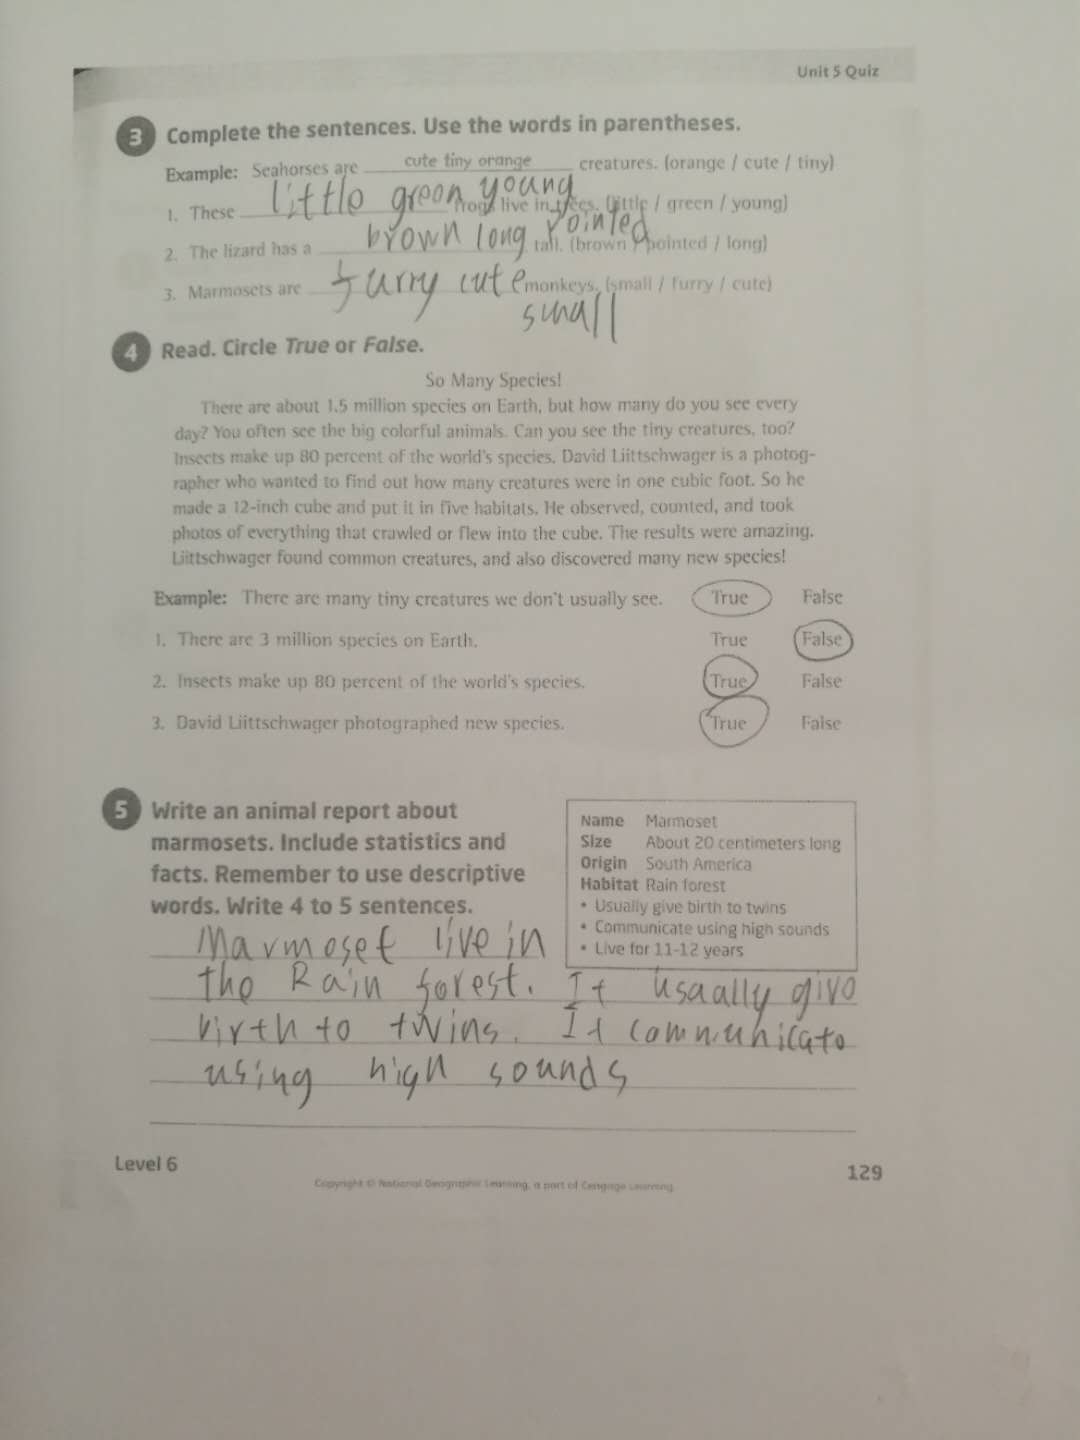 Unit 5 Quiz
3 Complete the sentences. Use the words in parentheses.
Example: Seahorses are cute tiny orange creatures. (orange / cute / tiny)
1. These little green young frogs live in trees. (little / green / young)
2. The lizard has a brown long pointed tail. (brown / pointed / long)
3. Marmosets are furry cute monkeys. (small / furry / cute)
small
4 Read. Circle True or False.
So Many Species!
There are about 1.5 million species on Earth, but how many do you see every
day? You often see the big colorful animals. Can you see the tiny creatures, too?
Insects make up 80 percent of the world's species. David Liittschwager is a photog-
rapher who wanted to find out how many creatures were in one cubic foot. So he
made a 12-inch cube and put it in five habitats. He observed, counted, and took
photos of everything that crawled or flew into the cube. The results were amazing.
Liittschwager found common creatures, and also discovered many new species!
Example: There are many tiny creatures we don't usually see. True False
1. There are 3 million species on Earth. True False
2. Insects make up 80 percent of the world's species. True False
3. David Liittschwager photographed new species. True False
5 Write an animal report about
marmosets. Include statistics and
facts. Remember to use descriptive
words. Write 4 to 5 sentences.
Name Marmoset
Size About 20 centimeters long
Origin South America
Habitat Rain forest
• Usually give birth to twins
• Communicate using high sounds
• Live for 11-12 years
Marmoset live in
the Rain forest. It usaally give
birth to twins. It communicate
using high sounds
Level 6
129
Copyright © National Geographic Learning, a part of Cengage Learning